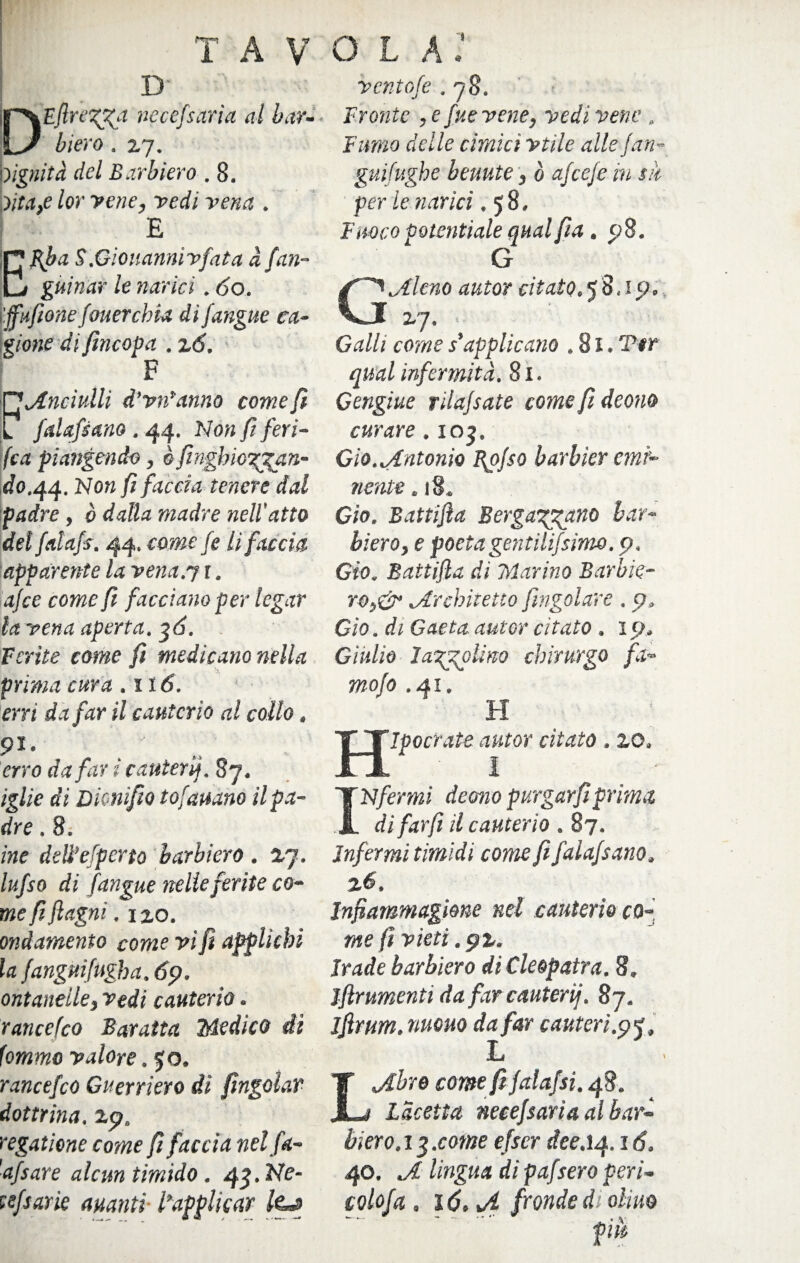 TAVOLA.
D
DEſtrezza neceſsaria al bar-
biero . 27.
ignità del Barbiero . 8.
ita,e lor vene, vedi vena .
E
ERba S.Giouanni vſata à ſan-
guinar le narici . 60.
ffuſione ſouerchia di ſangue ca-
gione di ſincopa . 26.
F
FAnciulli d'vn'anno come ſi
ſalaſsano . 44. Non ſi feri-
ſca piangendo , ò ſinghiozzan-
do.44. Non ſi faccia tenere dal
padre , ò dalla madre nell'atto
del ſalaſs. 44. come ſe li faccia
apparente la vena.71.
aſce come ſi facciano per legar
la vena aperta. 36.
Ferite come ſi medicano nella
prima cura . 116.
erri da far il cauterio al collo .
91.
erro da far i cauterij. 87.
iglie di Dioniſio toſauano il pa-
dre . 8.
ine dell'eſperto barbiero . 27.
luſso di ſangue nelle ferite co-
me ſi ſtagni . 120.
ondamento come vi ſi applichi
la ſanguiſugha. 69.
ontanelle, vedi cauterio .
rancesco Baratta Medico di
ſommo valore . 50.
rancesco Guerriero di ſingolar
dottrina. 29.
regatione come ſi faccia nel ſa-
laſsare alcun timido . 43. Ne-
ceſsarie auanti l'applicar le
ventoſe . 78.
Fronte , e ſue vene, vedi vene .
Fumo delle cimici vtile alle ſan-
guiſughe beuute , ò aſceſe in sù
per le narici . 58.
Fuoco potentiale qual ſia . 98.
G
GAleno autor citato. 58.19.
27.
Galli come s'applicano . 81. Per
qual infermità. 81.
Gengiue rilaſsate come ſi deono
curare . 103.
Gio. Antonio Roſso barbier emi-
nente . 18.
Gio. Battiſta Bergazzano bar-
biero, e poeta gentiliſsimo. 9.
Gio. Battiſta di Marino Barbie-
ro,& Architetto ſingolare . 9.
Gio. di Gaeta autor citato . 19.
Giulio Iazzolino chirurgo fa-
moſo . 41.
H
HIpocrate autor citato . 20.
I
INfermi deono purgarſi prima
di farſi il cauterio . 87.
Infermi timidi come ſi ſalaſsano.
26.
Infiammagione nel cauterio co-
me ſi vieti . 92.
Irade barbiero di Cleopatra. 8.
Iſtrumenti da far cauterij. 87.
Iſtrum. nuouo da far cauteri.95.
L
LAbro come ſi ſalaſsi. 48.
Lacetta neceſsaria al bar-
biero.13.come eſser dee.14.16.
40. A lingua di paſsero peri-
coloſa . 16. A fronde di oliuo
più